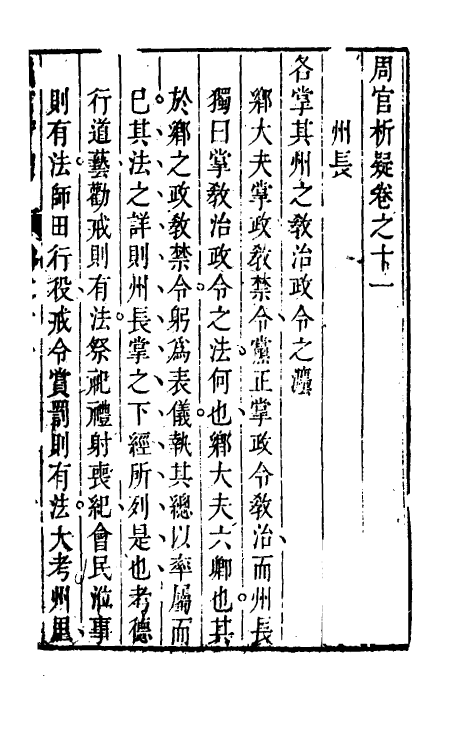 周官析疑卷之十一
州長
各掌其州之敎治政令之灋
鄉大夫掌政敎禁令黨正掌政令敎治而州長
獨曰掌敎治政令之法何也鄉大夫六卿也其
於鄉之政敎禁令躬爲表儀執其總以率屬而
已其法之詳則州長掌之下經所列是也考德
行道藝勸戒則有法祭祀禮射喪紀會民涖事
則有法師田行役戒令賞罰則有法大考州里